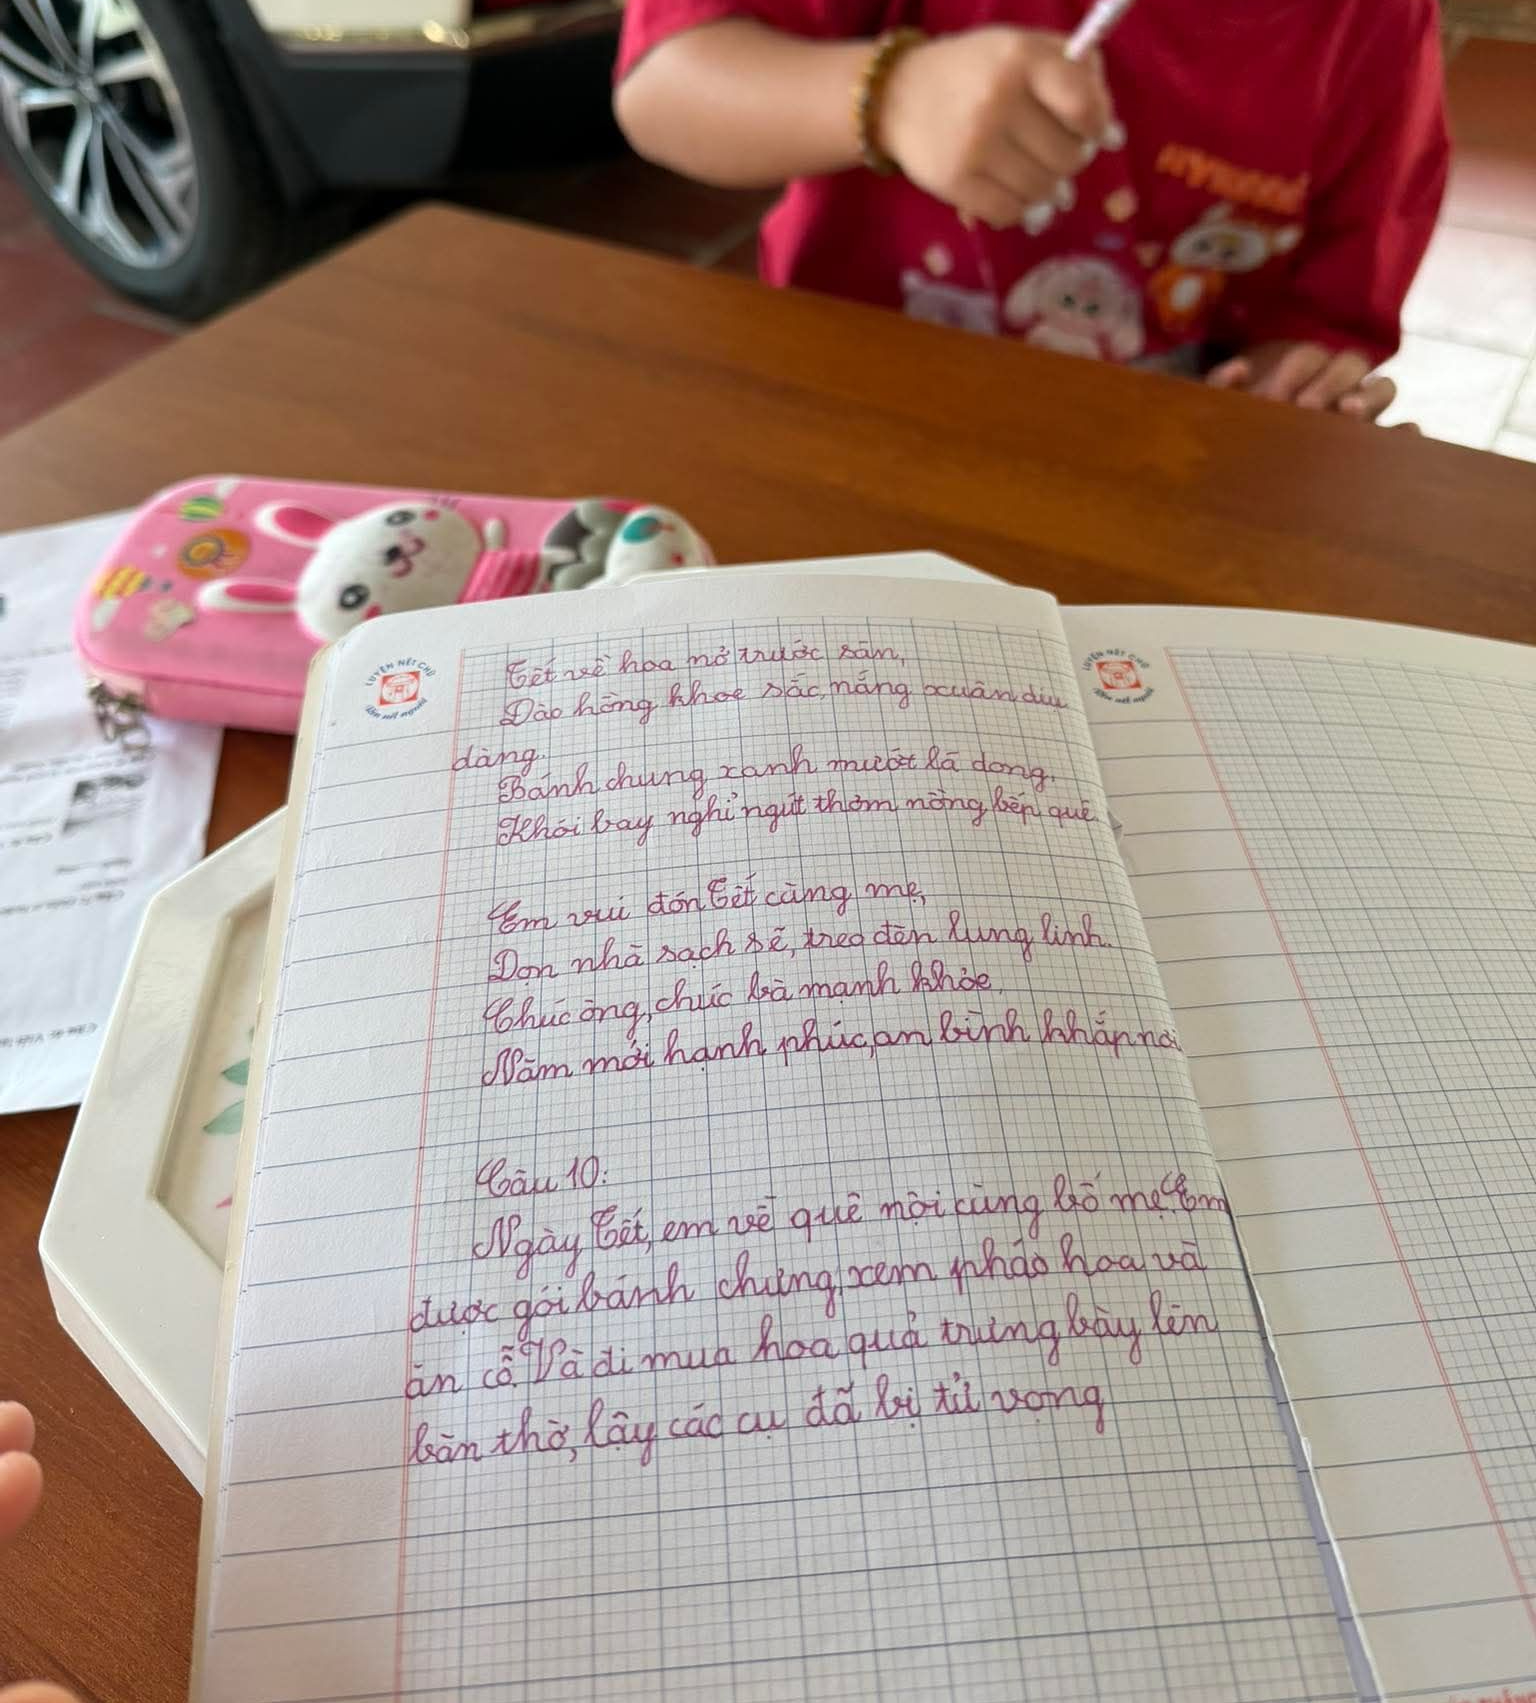 LUYỆN NÉT CHỮ
Rèn nết người
LUYỆN NÉT CHỮ
Rèn nết người
Tết về hoa nở trước sân,
Đào hồng khoe sắc, nắng xuân dịu
dàng.
Bánh chưng xanh mướt lá dong,
Khói bay nghi ngút thơm nồng bếp quê
Em vui đón Tết cùng mẹ,
Dọn nhà sạch sẽ, treo đèn lung linh.
Chúc ông, chúc bà mạnh khỏe,
Năm mới hạnh phúc, an bình khắp nơi
Câu 10:
Ngày Tết, em về quê nội cùng bố mẹ. Em
được gói bánh chưng, xem pháo hoa và
ăn cỗ. Và đi mua hoa quả trưng bày lên
bàn thờ, lạy các cụ đã bị tử vong